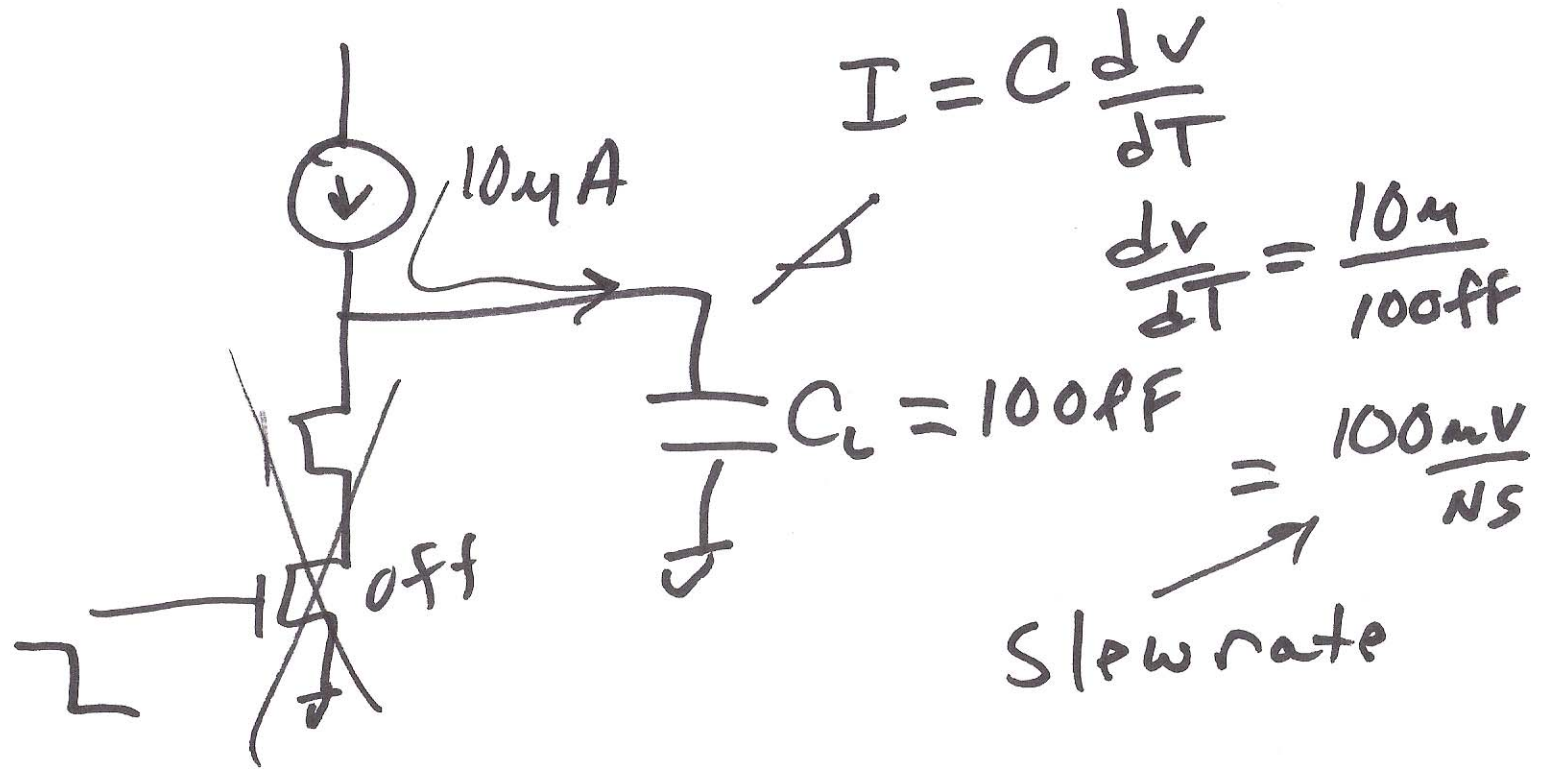 I = C dV/dT
10μA
dV/dT = 10μ/100fF
C_L = 100fF
= 100mV/NS
off
Slew rate